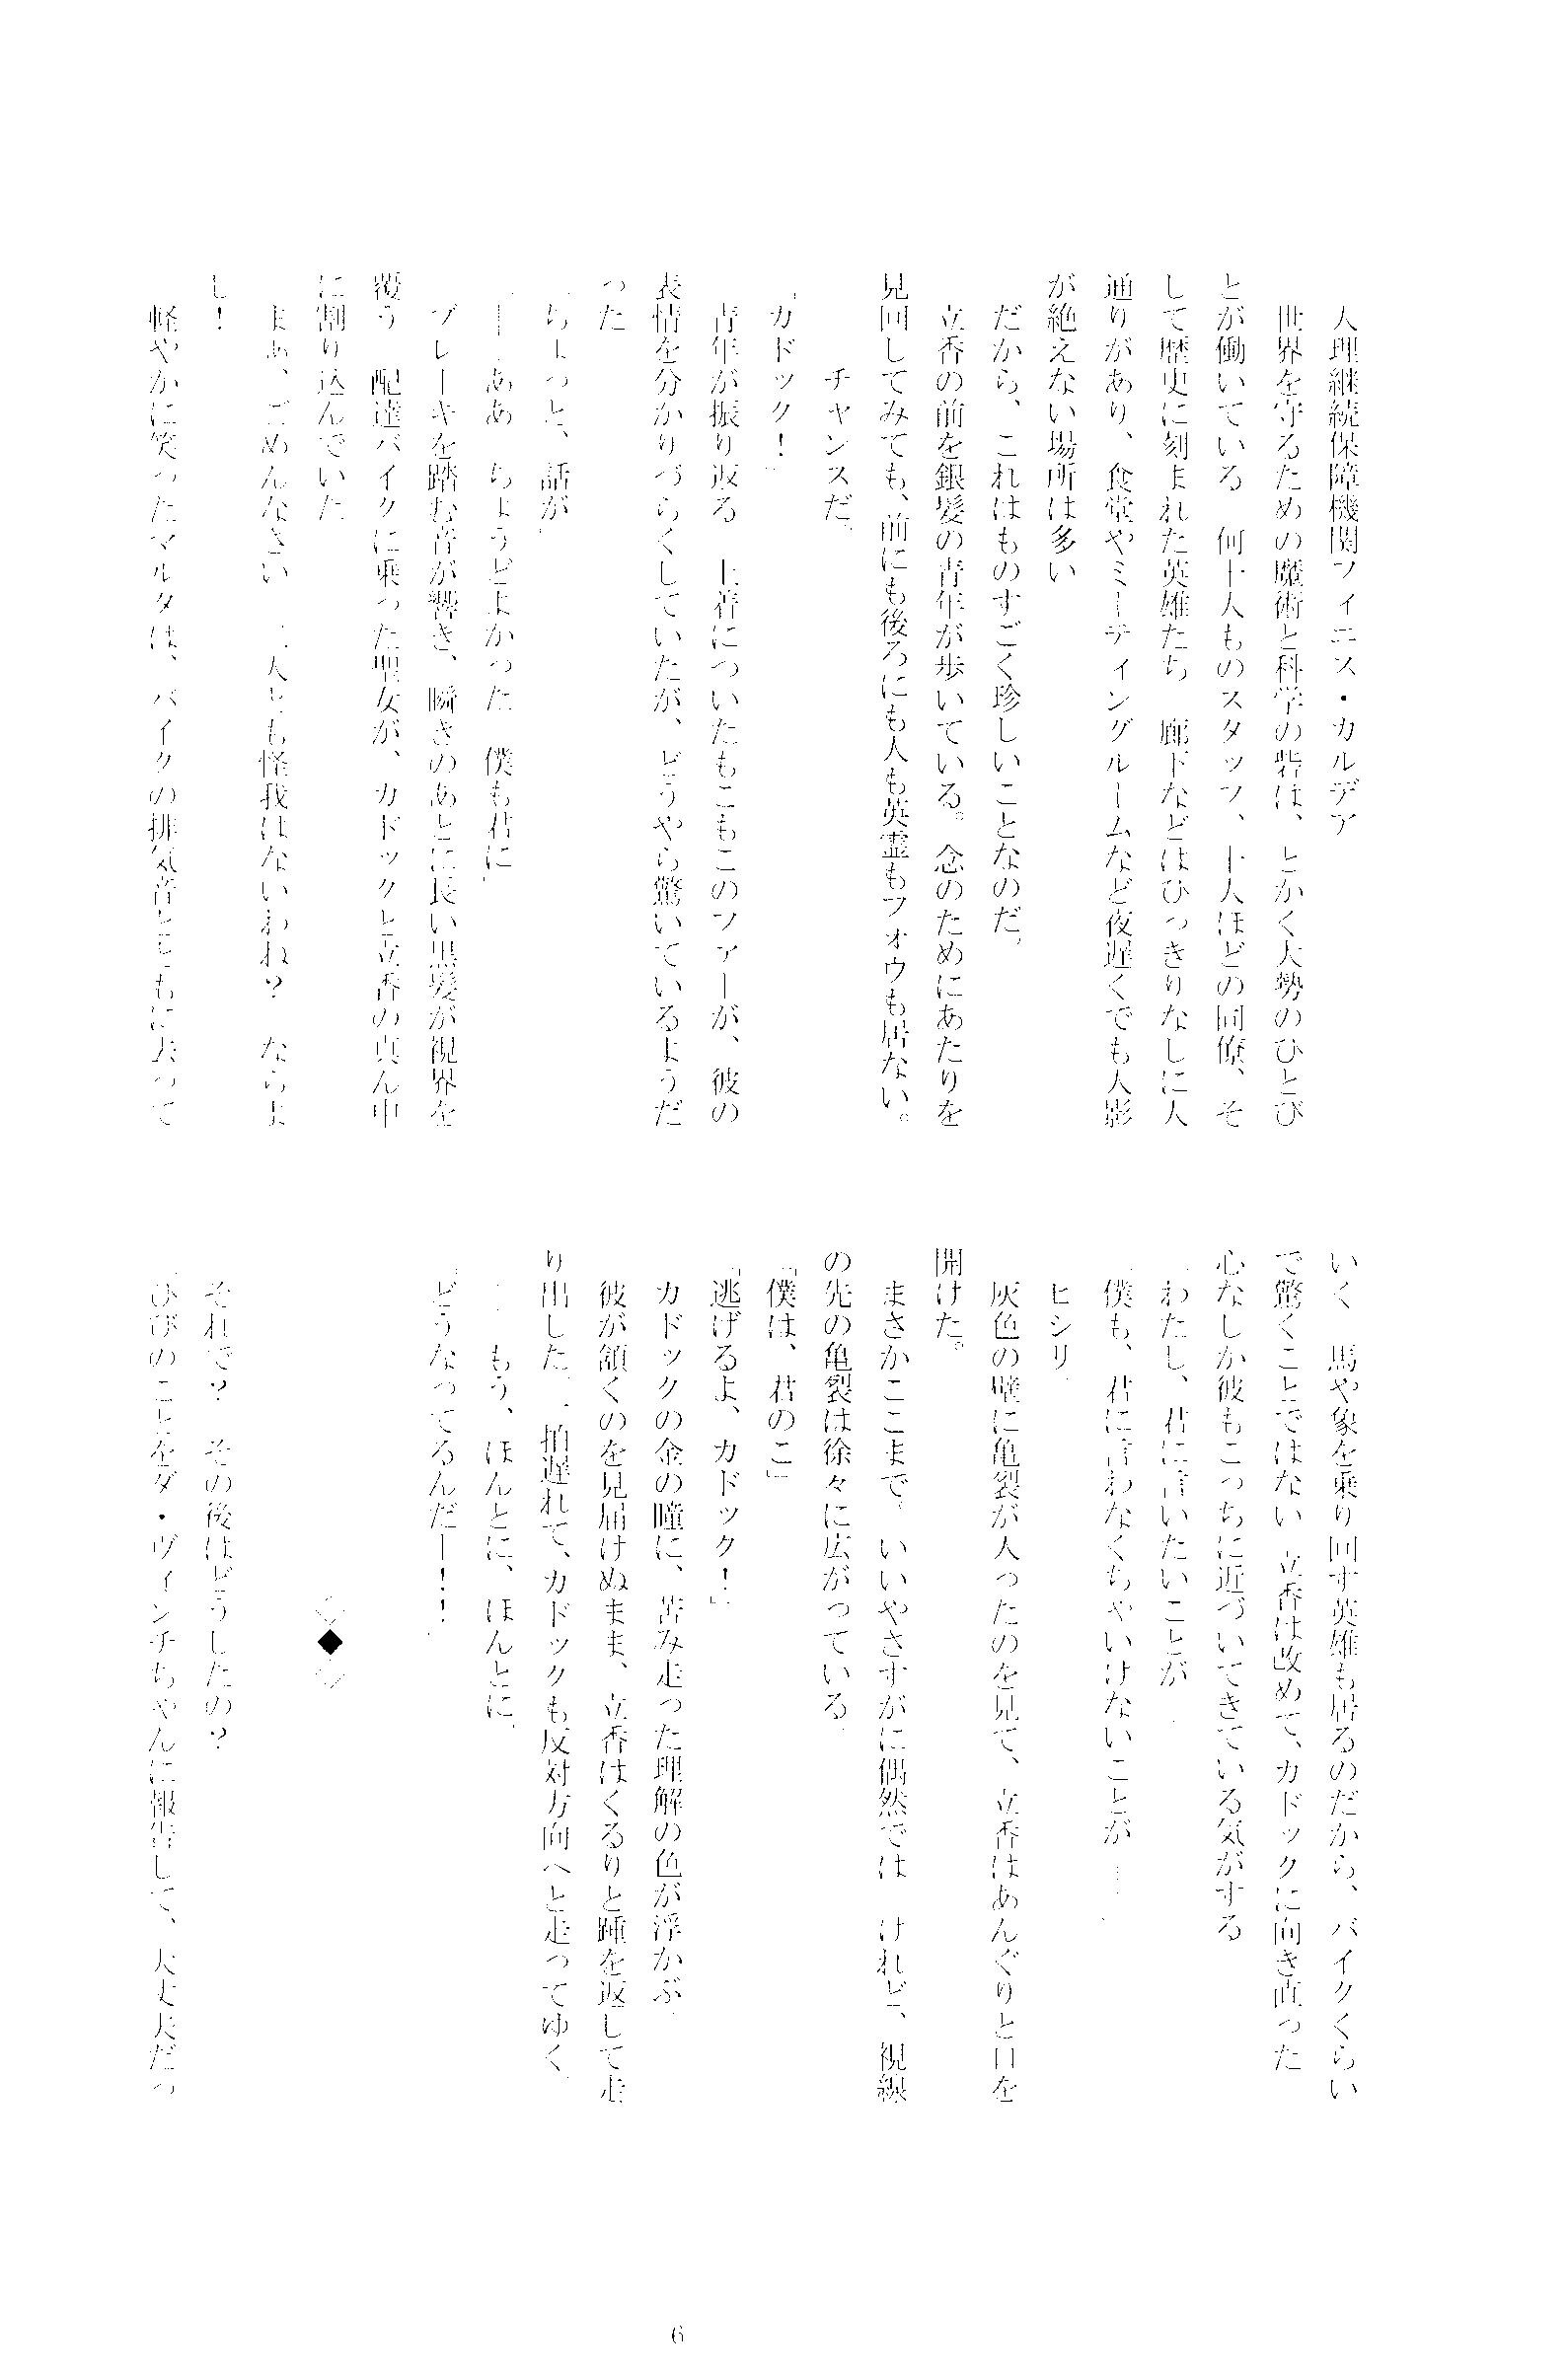 人理継続保障機関フィニス・カルデア
世界を守るための魔術と科学の砦は、とかく大勢のひとび
とが働いている　何十人ものスタッフ、十人ほどの同僚、そ
して歴史に刻まれた英雄たち　廊下などはひっきりなしに人
通りがあり、食堂やミーティングルームなど夜遅くでも人影
が絶えない場所は多い
だから、これはものすごく珍しいことなのだ。
立香の前を銀髪の青年が歩いている。念のためにあたりを
見回してみても、前にも後ろにも人も英霊もフォウも居ない。
チャンスだ。
「カドック！」
青年が振り返る　上着についたもこもこのファーが、彼の
表情を分かりづらくしていたが、どうやら驚いているようだ
った
「ちょっと、話が」
「――ああ　ちょうどよかった　僕も君に」
ブレーキを踏む音が響き、瞬きのあとに長い黒髪が視界を
覆う　配達バイクに乗った聖女が、カドックと立香の真ん中
に割り込んでいた
「まあ、ごめんなさい　二人とも怪我はないわね？　ならよ
し！
軽やかに笑ったマルタは、バイクの排気音とともに去って
いく　馬や象を乗り回す英雄も居るのだから、バイクくらい
で驚くことではない　立香は改めて、カドックに向き直った
心なしか彼もこっちに近づいてきている気がする
「わたし、君に言いたいことが
「僕も、君に言わなくちゃいけないことが――
ヒシリ
灰色の壁に亀裂が入ったのを見て、立香はあんぐりと口を
開けた。
まさかここまで。いいやさすがに偶然では　けれど、視線
の先の亀裂は徐々に広がっている
「僕は、君のこ」
「逃げるよ、カドック！」
カドックの金の瞳に、苦み走った理解の色が浮かぶ
彼が頷くのを見届けぬまま、立香はくるりと踵を返して走
り出した。一拍遅れて、カドックも反対方向へと走ってゆく
もう、ほんとに、ほんとに、
「どうなってるんだー！！
◇◆◇
それで？　その後はどうしたの？
「ひびのことをダ・ヴィンチちゃんに報告して、大丈夫だっ
6